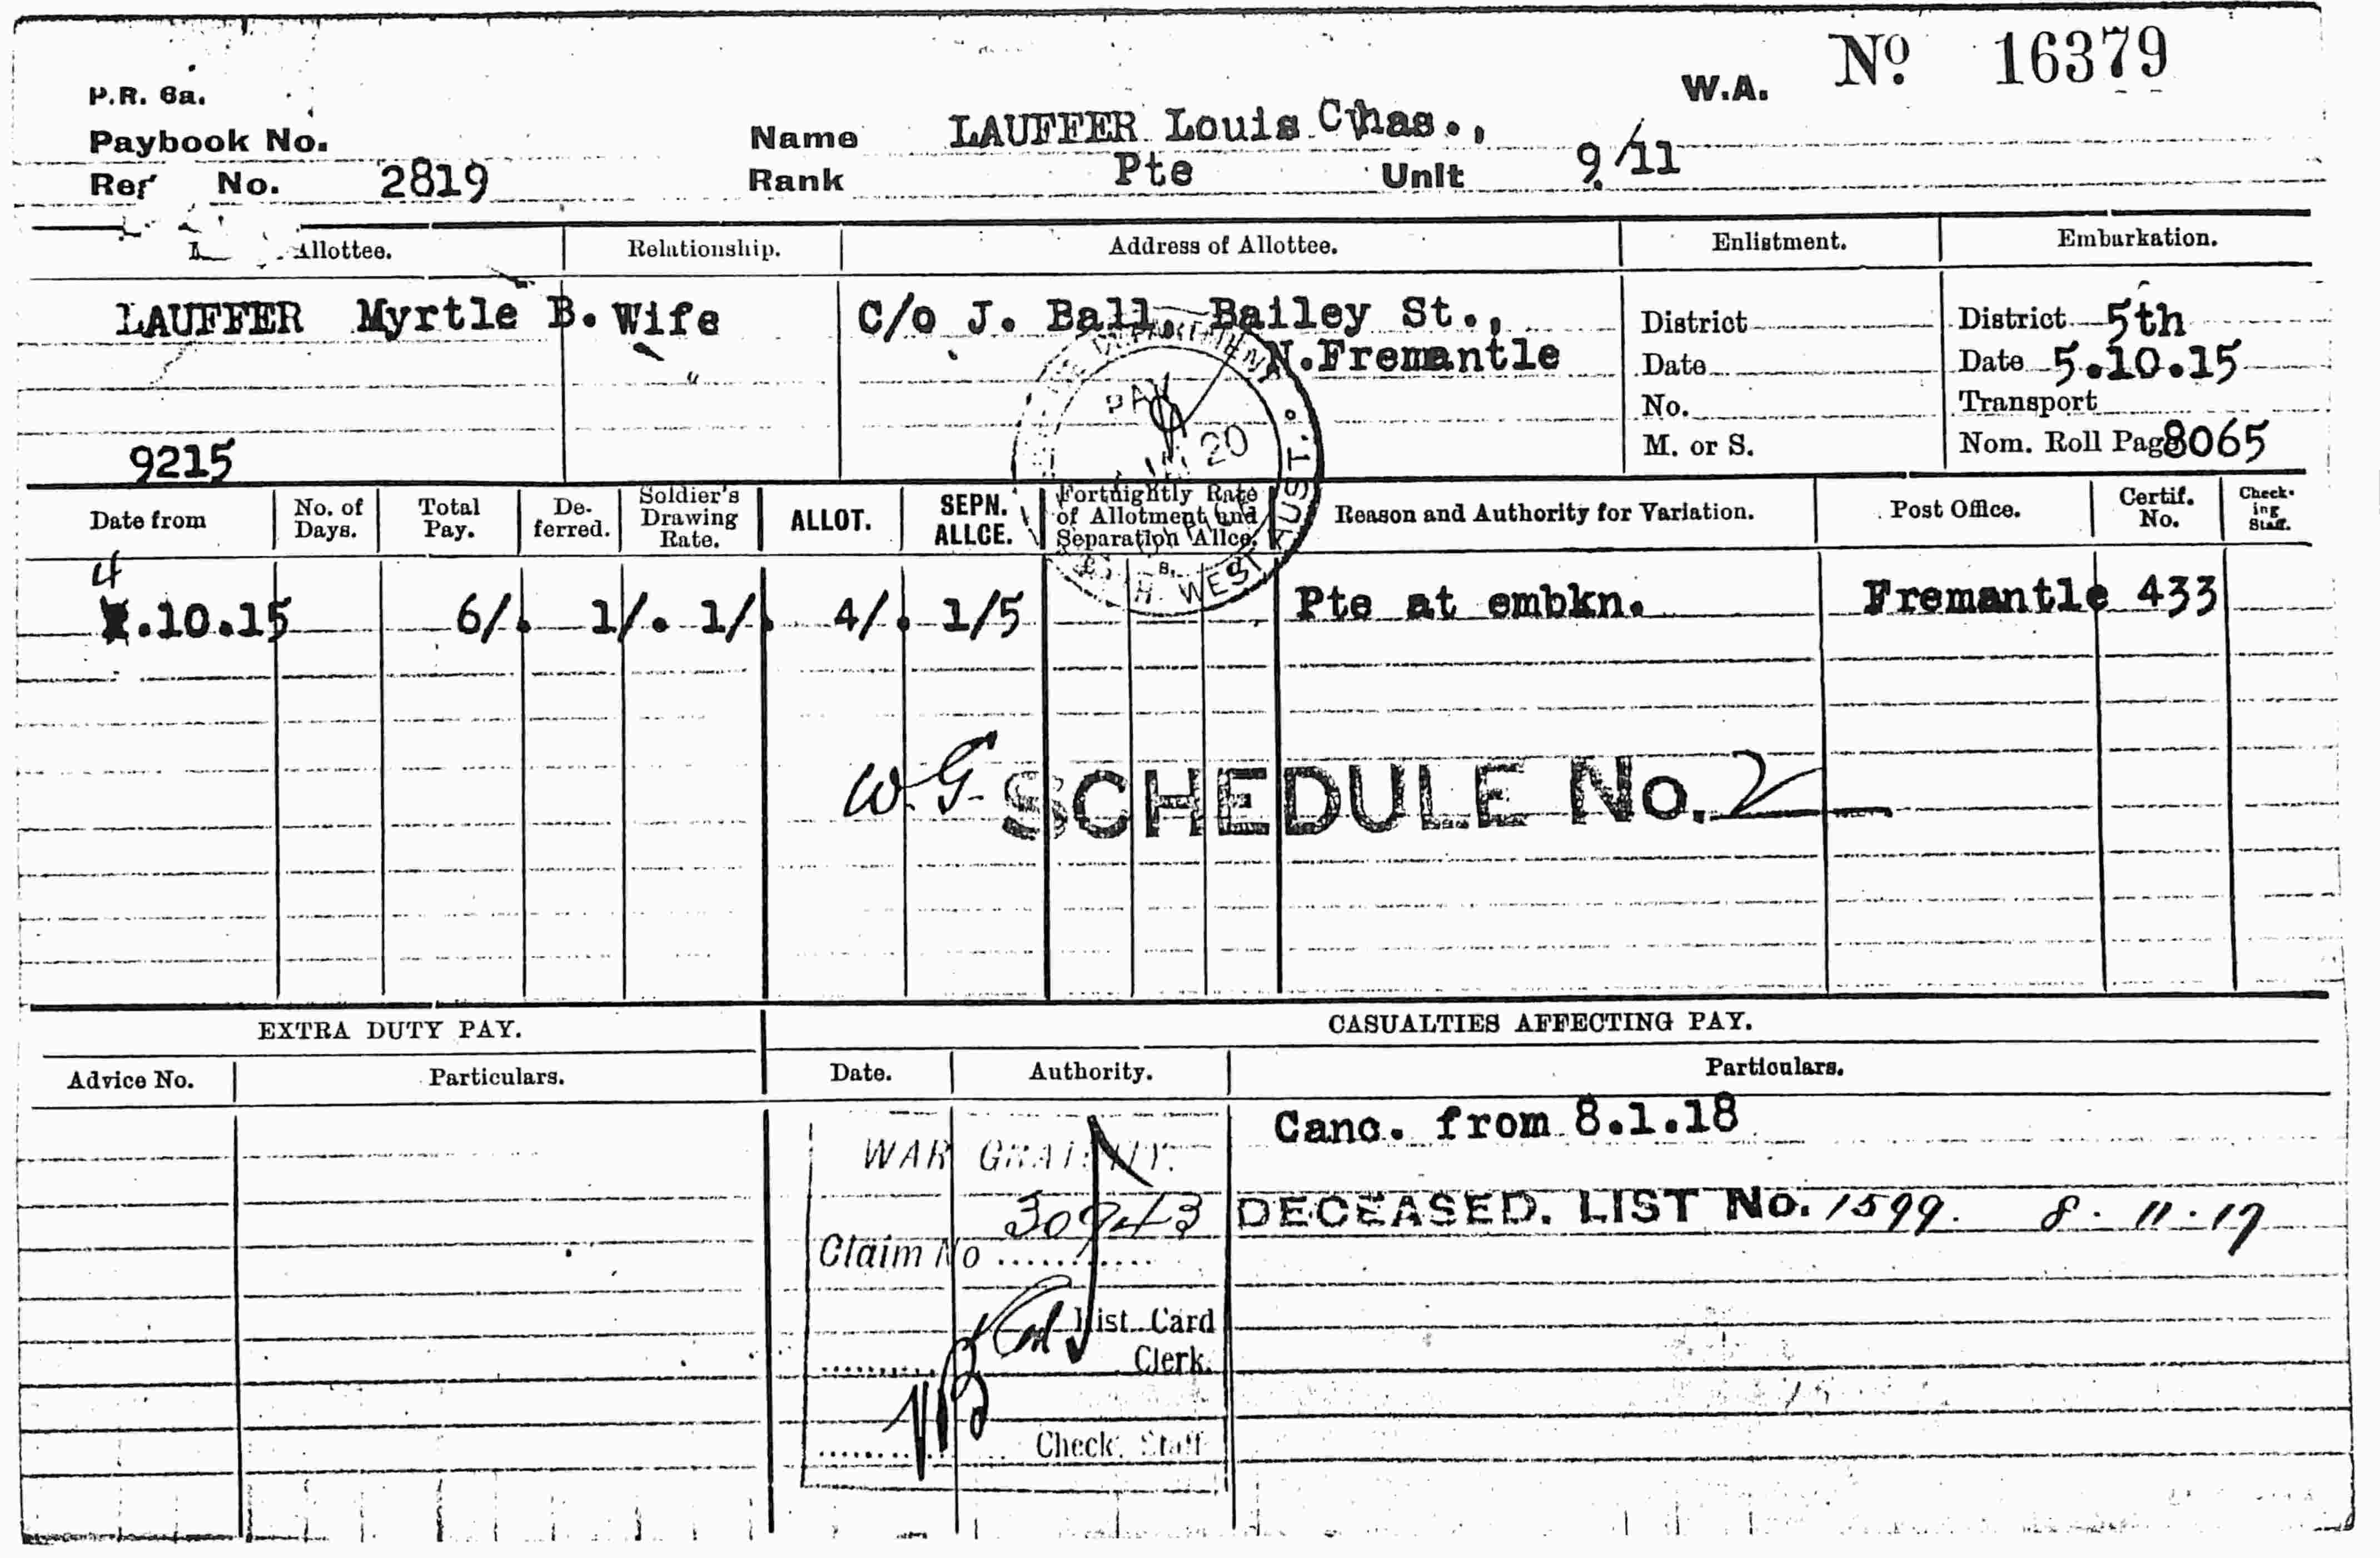 W.A. No. 16379
P.R. 6a.
Paybook No.
Name LAUFFER Louis Chas.,
Ref No. 2819
Rank Pte Unit 9/11
Allottee. Relationship. Address of Allottee. Enlistment. Embarkation.
LAUFFER Myrtle B. Wife C/o J. Ball, Bailey St., District District 5th
N.Fremantle Date Date 5.10.15
No. Transport
9215 M. or S. Nom. Roll Page 8065
PAY
20
WEST AUST.
Date from No. of Days. Total Pay. De-ferred. Soldier's Drawing Rate. ALLOT. SEPN. ALLCE. Fortnightly Rate of Allotment and Separation Allce. Reason and Authority for Variation. Post Office. Certif. No. Check-ing Staff.
4
.10.15 6/. 1/. 1/. 4/. 1/5 Pte at embkn. Fremantle 433
W.G. SCHEDULE No. 2
EXTRA DUTY PAY. CASUALTIES AFFECTING PAY.
Advice No. Particulars. Date. Authority. Particulars.
Canc. from 8.1.18
WAR GRATUITY.
30943 DECEASED. LIST No. 1599. 8.11.17
Claim No
List Card
Clerk.
Check. Staff